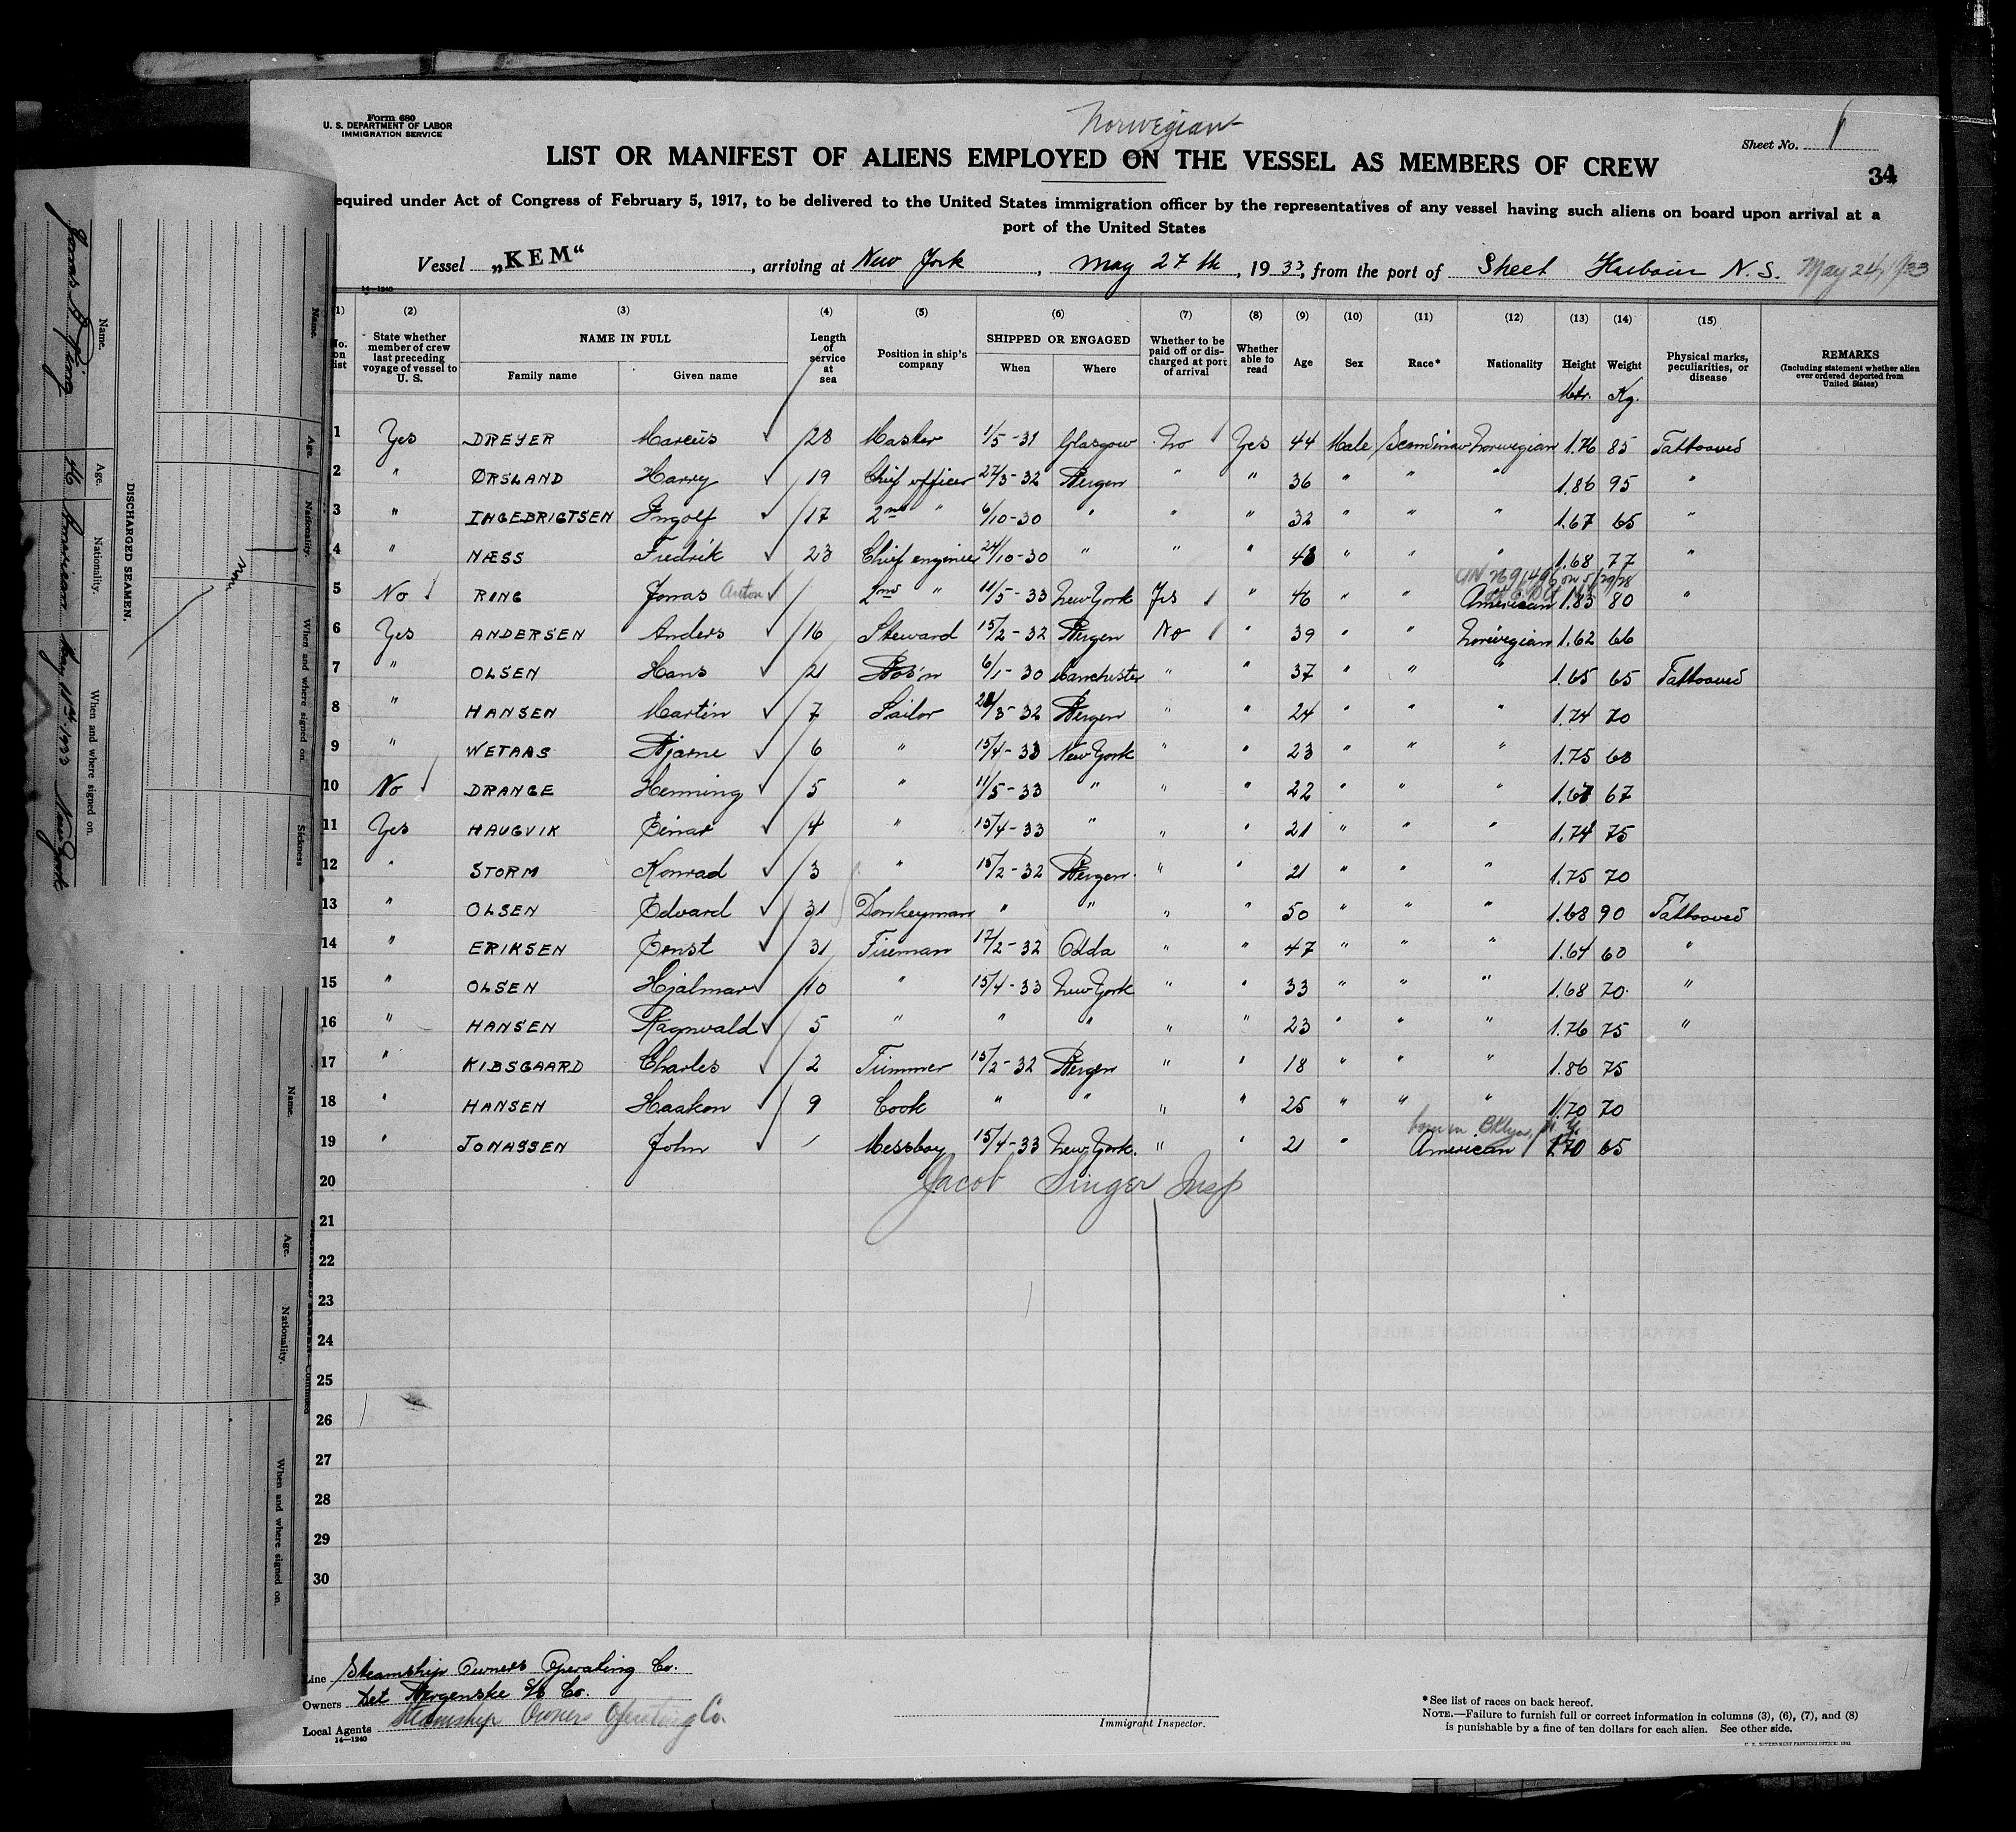 Form 680
U. S. DEPARTMENT OF LABOR
IMMIGRATION SERVICE
Norwegian
Sheet No. 1
LIST OR MANIFEST OF ALIENS EMPLOYED ON THE VESSEL AS MEMBERS OF CREW
34
equired under Act of Congress of February 5, 1917, to be delivered to the United States immigration officer by the representatives of any vessel having such aliens on board upon arrival at a
port of the United States
Vessel „KEM“, arriving at New York, May 27th, 1933, from the port of Sheet Harbour N.S. May 24, 1933
14—1240
(1) (2) (3) (4) (5) (6) (7) (8) (9) (10) (11) (12) (13) (14) (15)
No. on list
State whether member of crew last preceding voyage of vessel to U. S.
NAME IN FULL
Family name Given name
Length of service at sea
Position in ship's company
SHIPPED OR ENGAGED
When Where
Whether to be paid off or discharged at port of arrival
Whether able to read
Age Sex Race* Nationality Height Weight
Metr. Kg.
Physical marks, peculiarities, or disease
REMARKS
(Including statement whether alien ever ordered deported from United States)
1 Yes DREYER Marcus 28 Master 1/5-31 Glasgow No Yes 44 Male Scandinav Norwegian 1.76 85 Tattooed
2 " ØRSLAND Harry 19 Chief officer 27/3-32 Bergen " " 36 " " " 1.86 95 "
3 " INGEBRIGTSEN Ingolf 17 2nd " 6/10-30 " " " 32 " " " 1.67 65 "
4 " NÆSS Fredrik 23 Chief engineer 24/10-30 " " " 48 " " " 1.68 77 "
5 No RING Jonas Anton 2nd " 11/5-33 New York Yes " 46 " " American 1.83 80 "
6 Yes ANDERSEN Anders 16 Steward 15/2-32 Bergen No " 39 " " Norwegian 1.62 66
7 " OLSEN Hans 21 Bos'n 6/1-30 Manchester " " 37 " " " 1.65 65 Tattooed
8 " HANSEN Martin 7 Sailor /3-32 Bergen " " 24 " " " 1.74 70
9 " WETAAS Bjarne 6 " 15/4-33 New York " " 23 " " " 1.75 68
10 No DRANGE Henning 5 " 11/5-33 " " " 22 " " " 67
11 Yes HAUGVIK Einar 4 " 15/4-33 " " " 21 " " " 1.74 75
12 " STORM Konrad 3 " 15/2-32 Bergen " " 21 " " " 1.75 70
13 " OLSEN Edvard 31 Donkeyman " " " " 50 " " " 1.68 90 Tattooed
14 " ERIKSEN Ernst 31 Fireman 17/2-32 Odda " " 47 " " " 1.64 60 "
15 " OLSEN Hjalmar 10 " 15/4-33 New York " " 33 " " " 1.68 70 "
16 " HANSEN Ragnvald 5 " " " " " 23 " " " 1.76 75 "
17 " KIBSGAARD Charles 2 Trimmer 15/2-32 Bergen " " 18 " " " 1.86 75
18 " HANSEN Haakon 9 Cook " " " " 25 " " " 1.70 70
born in Bklyn, N.Y.
19 " JONASSEN John Messboy 15/4-33 New York. " " 21 " American 1.70 65
20 Jacob Singer Insp
21
22
23
24
25
26
27
28
29
30
Line Steamship Owners Operating Co.
Owners Det Bergenske S/S Co.
Local Agents Steamship Owners Operating Co.
14—1240
Immigrant Inspector.
*See list of races on back hereof.
NOTE.—Failure to furnish full or correct information in columns (3), (6), (7), and (8)
is punishable by a fine of ten dollars for each alien. See other side.
U. S. GOVERNMENT PRINTING OFFICE: 1932
DISCHARGED SEAMEN.
Name. Age. Nationality. When and where signed on.
Jonas Ring 46 American May 11th 1933 New York
Name. Age. Nationality. When and where signed on. Sickness
Name. Age. Nationality. When and where signed on.